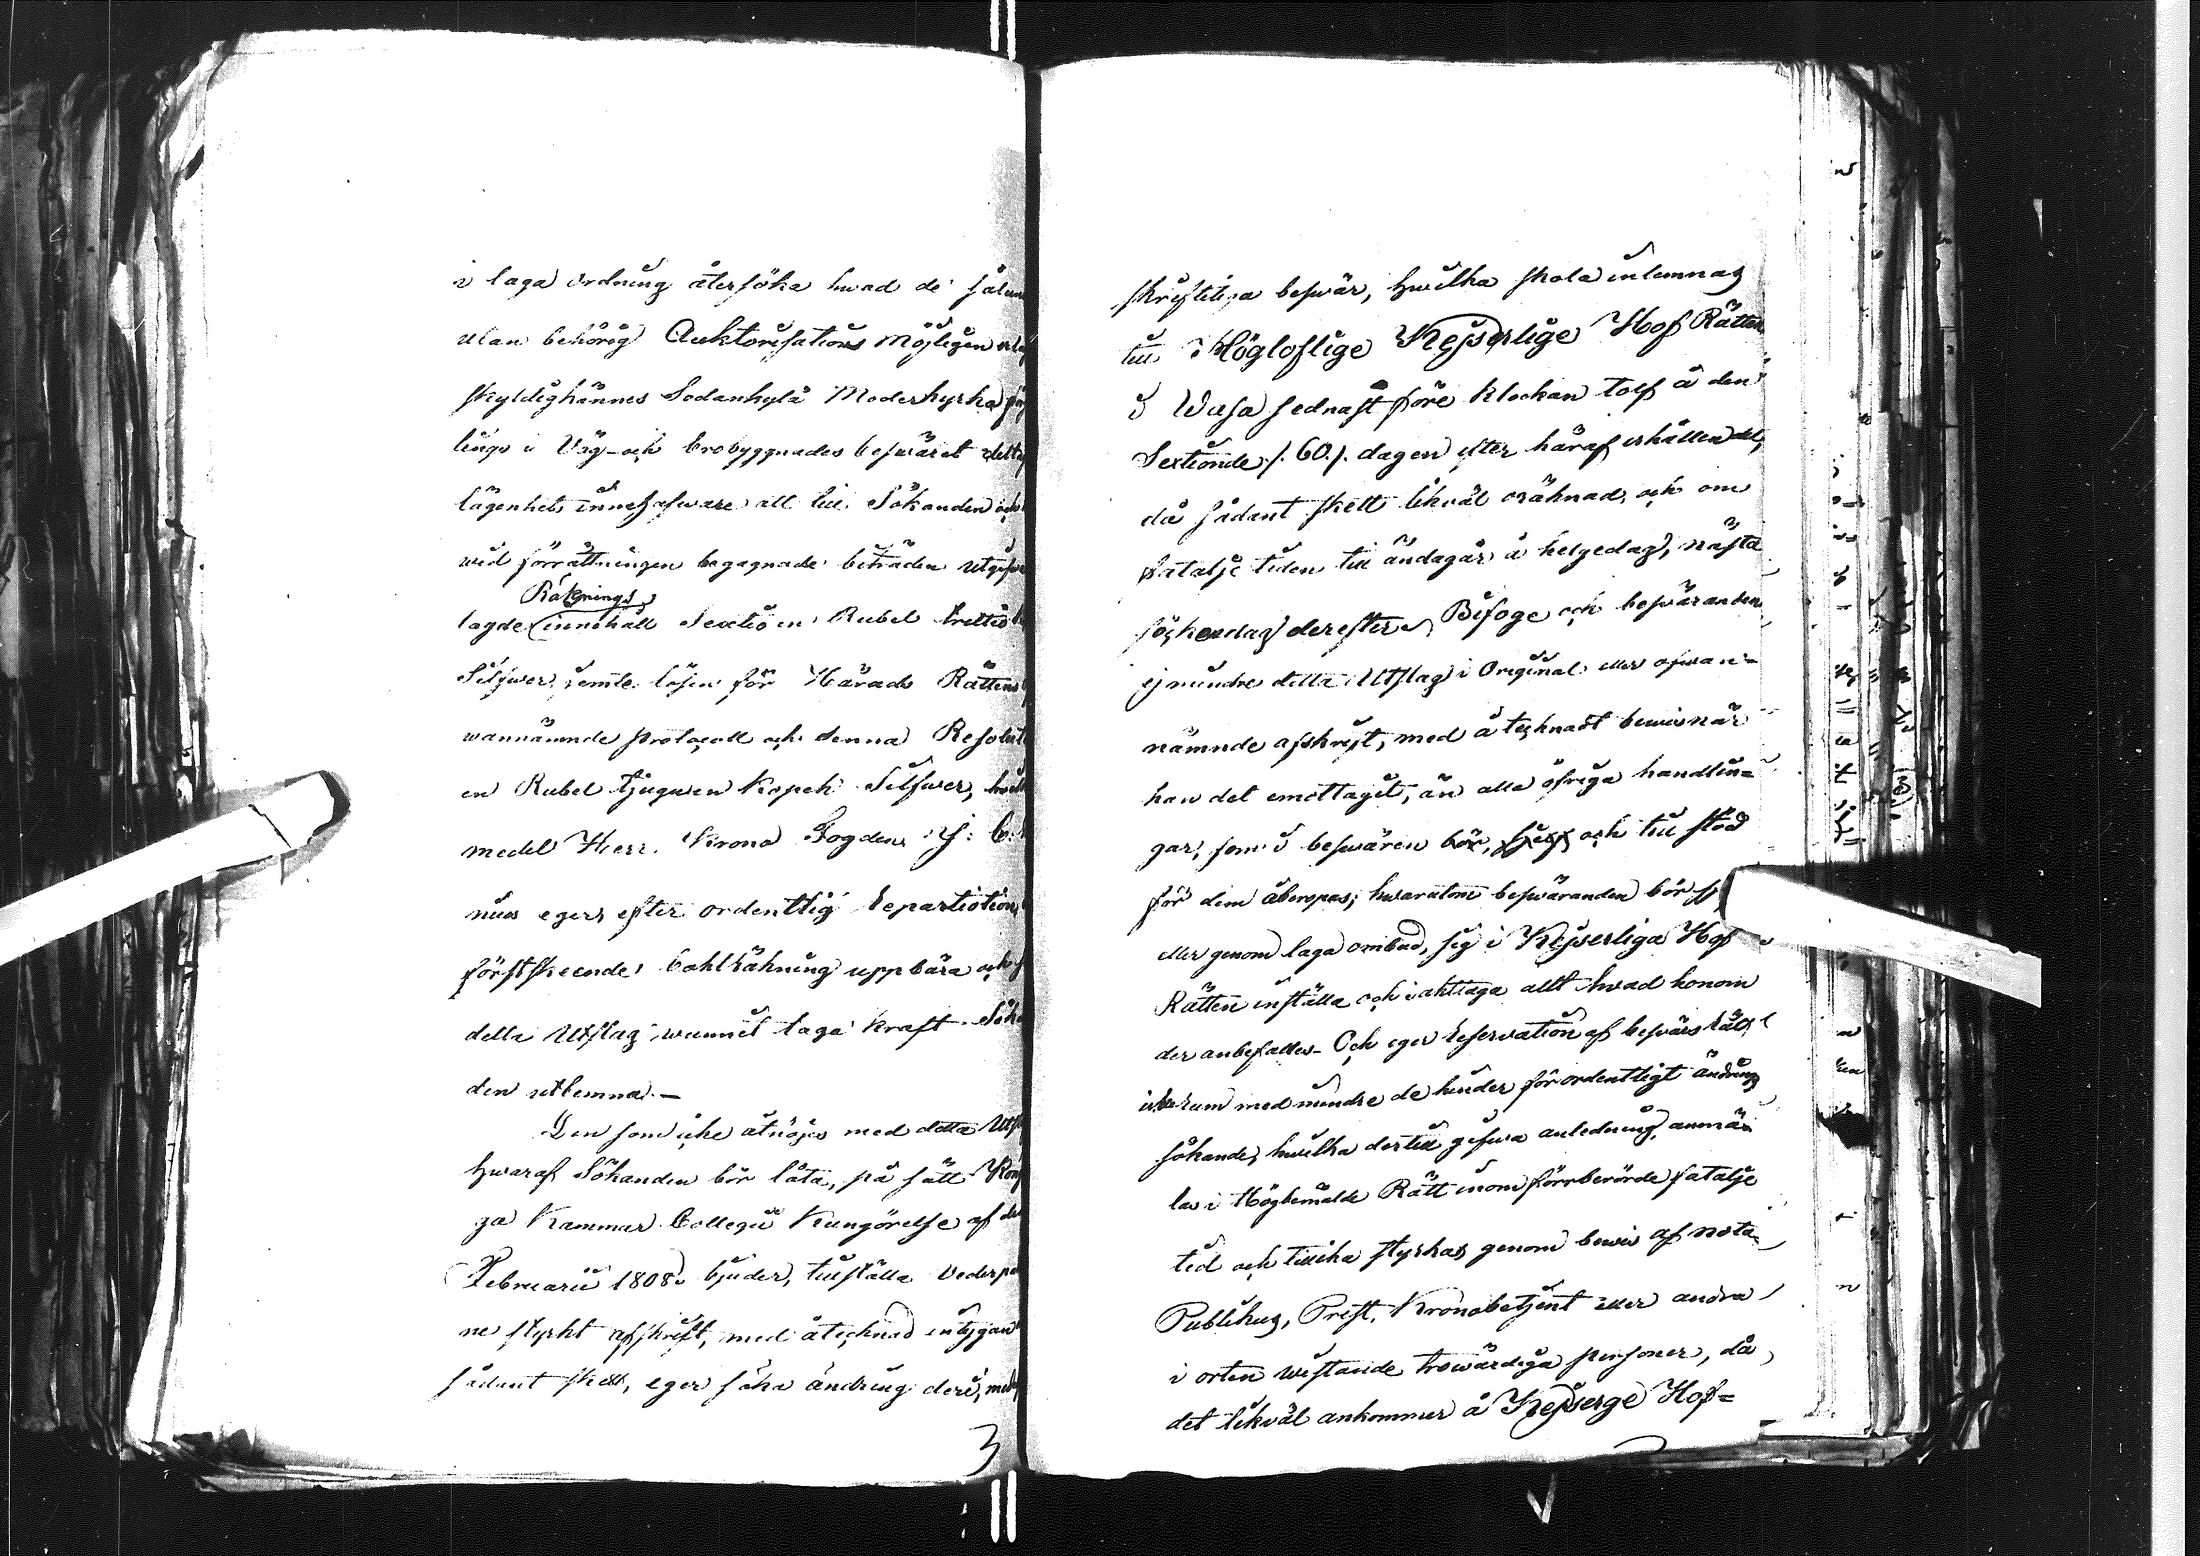 i laga ordning återsöka hwad de sålun
utan behörig Auktorisations möjligen
skyldighännes Sodankylä Moderkyrka
lings i Väg- och brobyggnades beswäret
lägenhets innehafware att till Sökanden och
wid förrättningen begagnade biträden utgifwa
Räknings
lagde innehåll Sextio en Rubel trettio
Silfwer, jemte lösen för Härads Rättens
wannämnde protocoll och denna Resolut
en Rubel tjugu en kopek Silfwer, hwil
medel Herr Krono Fogden J: C:
nius eger, efter ordentlig repartition
förstskeende bohlräkning uppbära och
detta Utslag wunnit laga kraft Sökan
den utlemna.-
Den som icke åtnöjes med detta Uts
hwaraf Sökanden bör låta, på sätt Kong
ga Kammar Collegii Kungörelse af den
Februarii 1808 bjuder, tillställa Vederpar
ne styrkt afskrift, med åtecknad intygan
sådant skett, eger söka ändring deri, med
3
skriftliga beswär, hwilka skola inlemnas
till Högloflige Kejserlige Hof Rätten
i Wasa sednast före klockan tolf å den
Sextionde /. 60./. dagen efter häraf erhållen del,
då sådant skett likväl oräknad, och om
fatalje tiden till ändagår å helgedag, nästa
söckendag derefter. Bifoge och beswäranden
ej mindre detta Utslag i Original eller ofwan-
nämnde afskrift, med åtecknadt bewis när
han det emottagit, än alla öfriga handlin=
gar, som i beswären bör, och till stöd
för dem åberopas; hwarutom beswäranden bör sj
eller genom laga ombud, sig i Kejserliga Hof
Rätten inställa och iakttaga allt hwad honom
der anbefalles- Och eger reservation af beswärs rätt
icke rum med mindre de hinder för ordentligt ändrings
sökande, hwilka dertill gifwa anledning, anmä-
las i Högbemälde Rätt inom förrberörde fatalje
tid och tillika styrkas genom bewis af nota-
Publikus, Prest, Kronobetjent eller andra
i orten wistande trowärdiga personer, då
det likväl ankommer å Kejserge Hof=